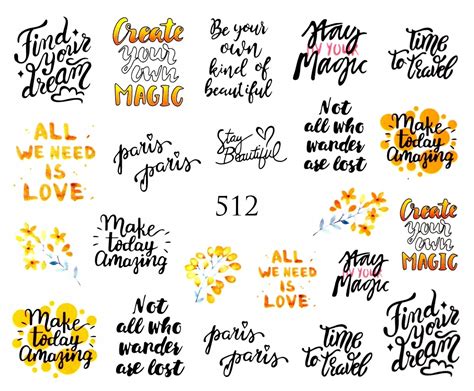 Find
your
dream
Create
your
own
MAGIC
Be your
own
kind of
beautiful
Stay
IN YOUR
Magic
Time
to travel
ALL
WE NEED
IS
LOVE
paris
paris
Stay
Beautiful
Not
all who
wander
are lost
Make
today
Amazing
512
Make
today
Amazing
ALL
WE NEED
IS
LOVE
Stay
IN YOUR
Magic
Create
your
own
MAGIC
Make
today
Amazing
Not
all who
wander
are lost
paris
paris
Time
to travel
Find
your
dream